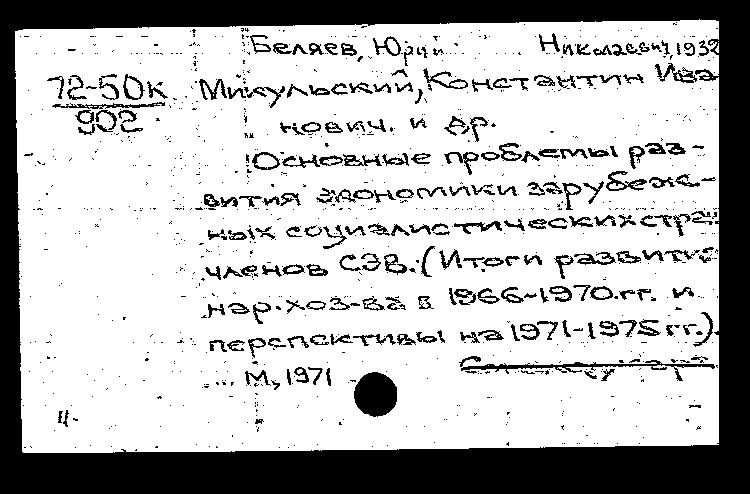 Беляев, Юрий Николаевич, 1932
72-50к
902
Микульский, Константин Ива
нович. и др.
Основные проблемы раз-
вития экономики зарубеж-
ных социалистических стран
членов СЭВ. (Итоги развития
нар. хоз-ва в 1966-1970.гг. и
перспективы на 1971-1975 гг.).
... М., 1971